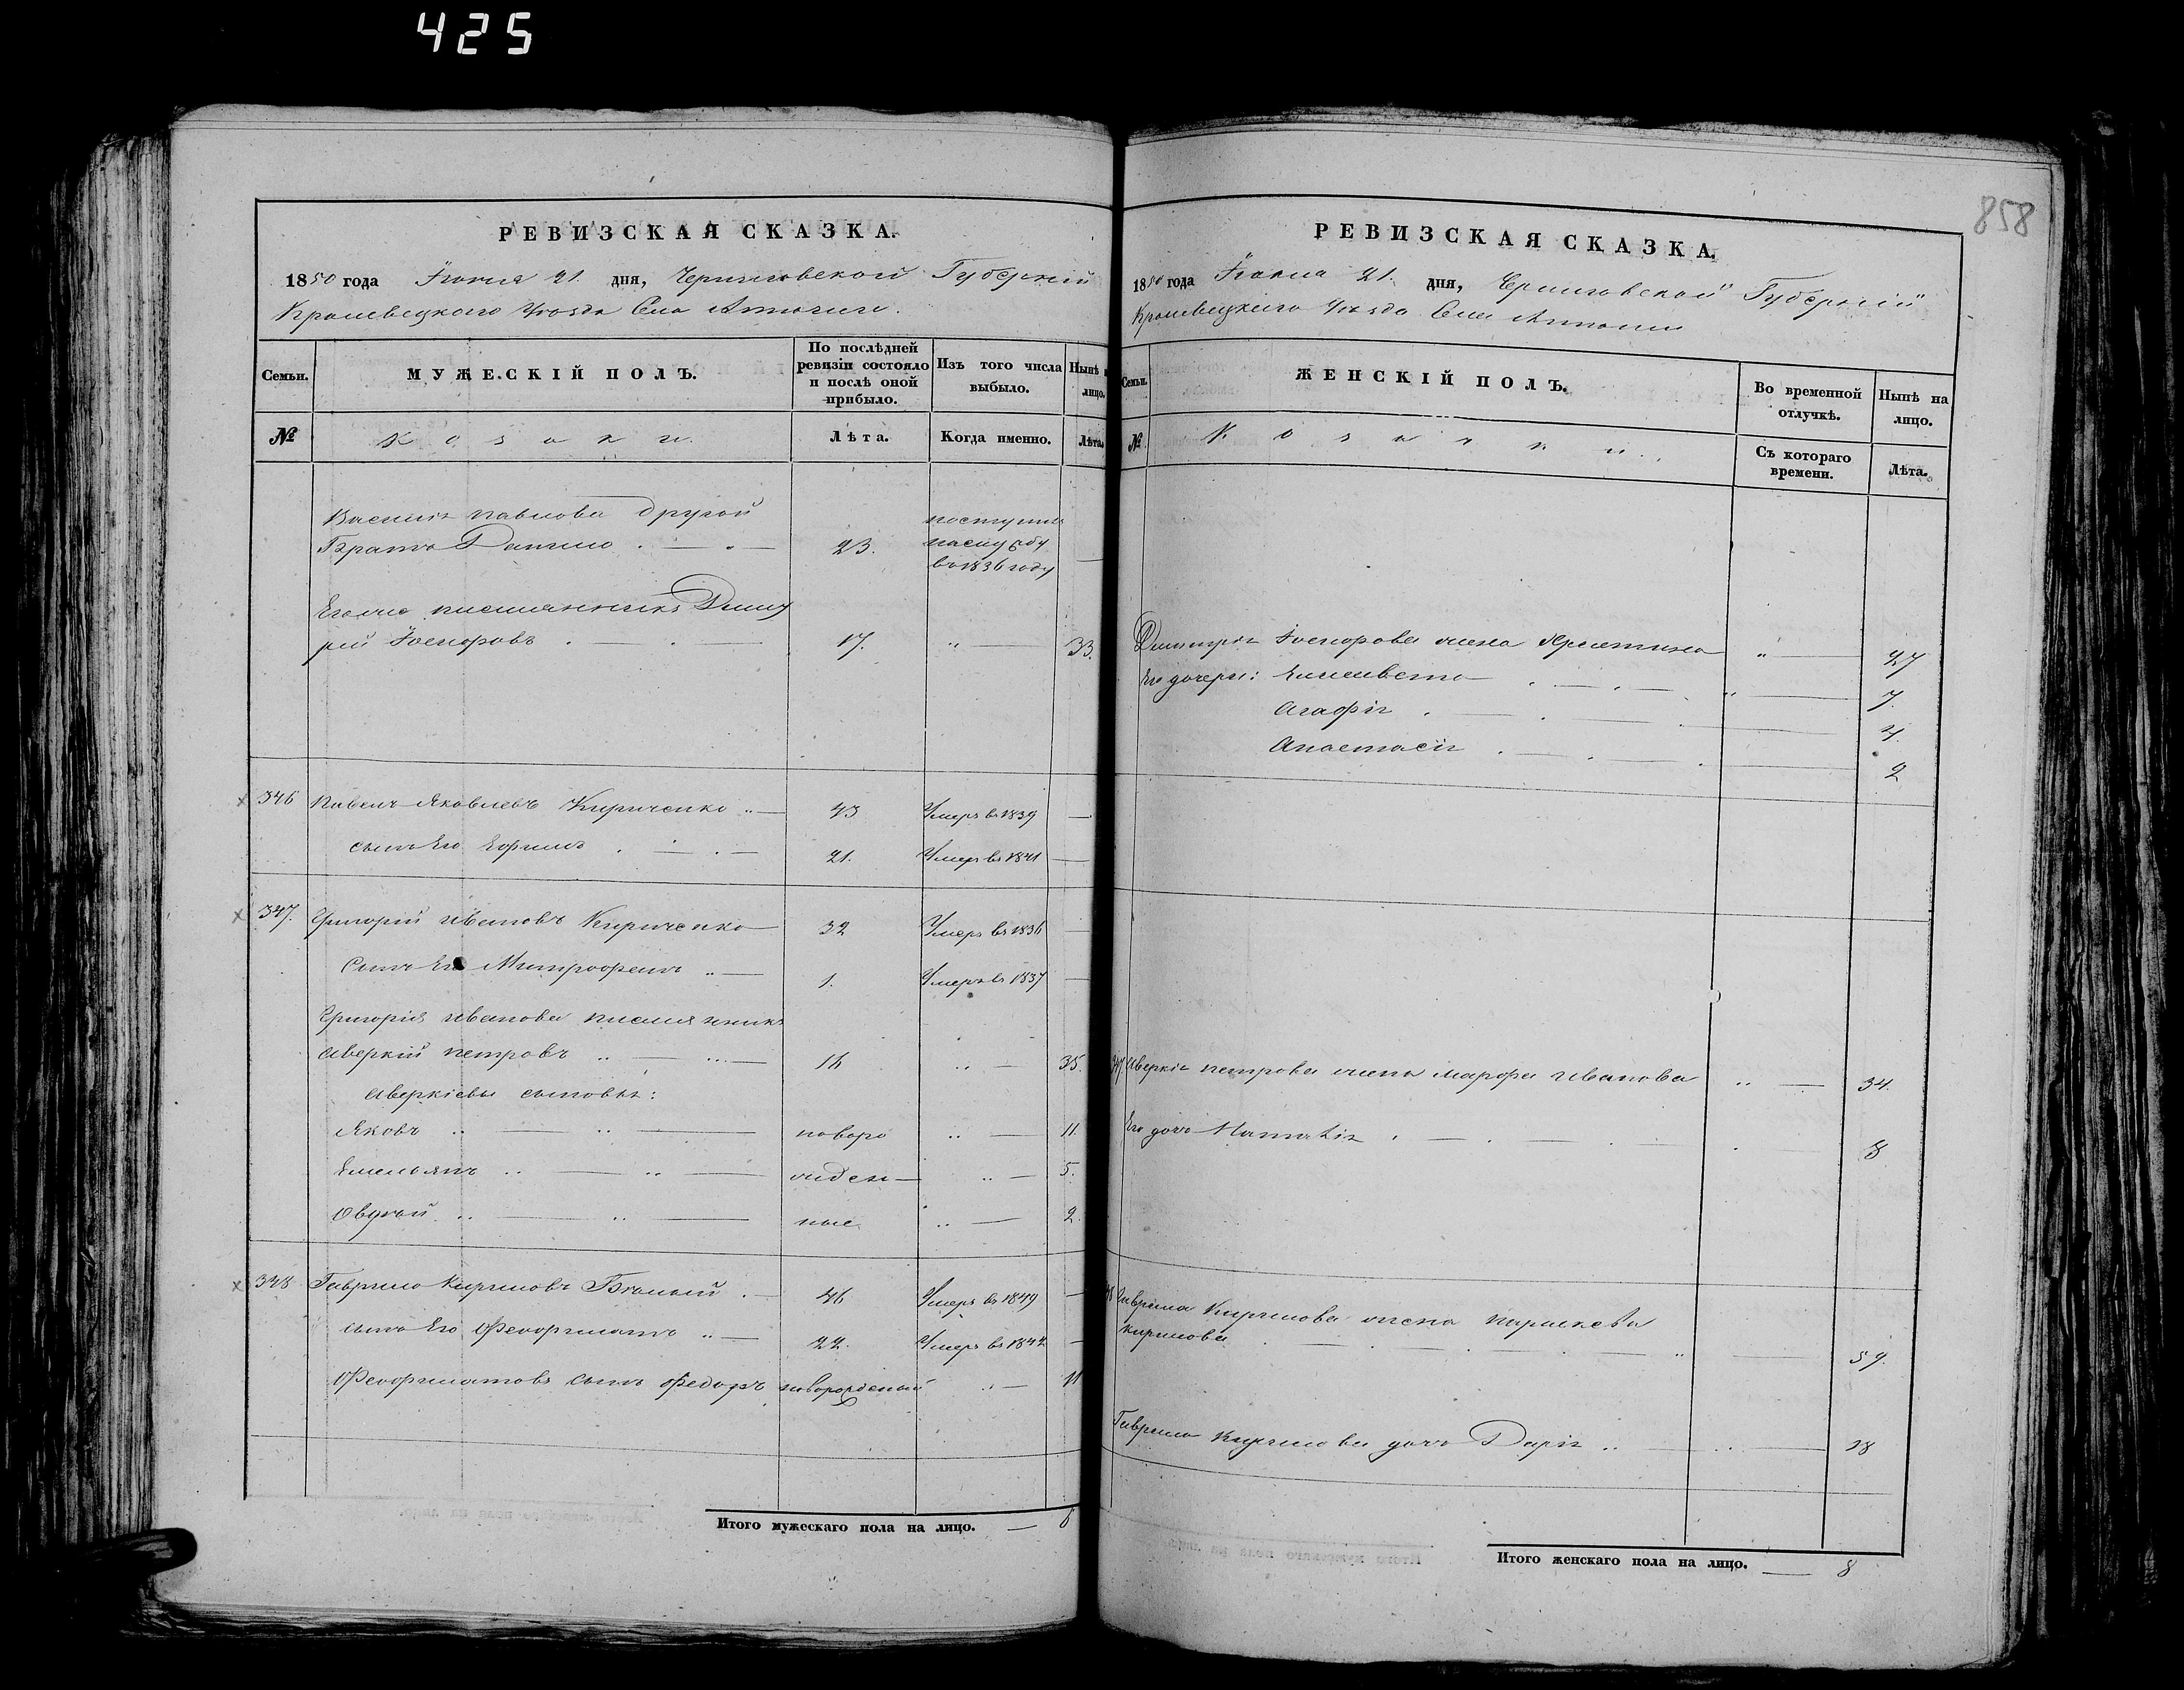 425
858
РЕВИЗСКАЯ СКАЗКА.
1850 года Іюня 21. дня, Черниговской Губерніи
Кролевецкого Уѣзда Села
Семьи. МУЖЕСКІЙ ПОЛЪ. По послѣдней ревизіи состояло и послѣ оной прибыло. Изъ того числа выбыло. Нынѣ на лицо.
№ Козаки. Лѣта. Когда именно. Лѣта.
Василія Павлова другой поступил
Братъ Данило 23. наслужбу
въ 1836 году
Его же племянникъ Дмит
рій Іосифовъ 17. " 33.
346 Павелъ Яковлевъ Кириченко 43 Умеръ въ 1839
сынъ Его Ефимъ 21. Умеръ въ 1841
347. Григорій Ивановъ Кириченко 32 Умеръ въ 1836
Сынъ Его Митрофанъ 1. Умеръ въ 1837
Григорія Иванова племянникъ
Аверкій Петровъ 35.
Аверкіевы сыновья:
Яковъ новоро 11.
Емельянъ жден 5.
ные 2.
348 Гаврило Кириловъ 46 Умеръ въ 1849
сынъ Его Феофилактъ 22. Умеръ въ 1842
Феофилактовъ сынъ Федоръ новорожденый 11
Итого мужескаго пола на лицо. — 6
РЕВИЗСКАЯ СКАЗКА.
1850 года Іюня 21. дня, Черниговской Губерніи
Кролевецкого Уѣзда Села
Семьи. ЖЕНСКІЙ ПОЛЪ. Во временной отлучкѣ. Нынѣ на лицо.
№ Козачки. Съ котораго времени. Лѣта.
Дмитрія Іосифова жена Христина " 27
Его дочери: Елисавета " 7.
Агафія 4.
Анастасія 2
347 Аверкія Петрова жена Марфа Иванова 34.
Его дочь Наталія 8
48 Гаврила Кирилова жена Параскева
Кирилова 59.
Гаврила Кирилова дочь Дарія 18
Итого женскаго пола на лицо. — 8